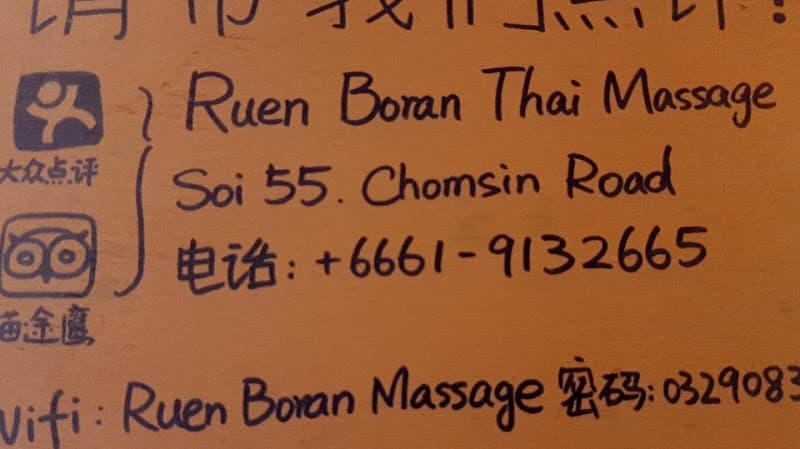 请帮我们点评!
Ruen Boran Thai Massage
大众点评
Soi 55. Chomsin Road
电话: +6661-9132665
猫途鹰
Wifi: Ruen Boran Massage 密码: 0329083